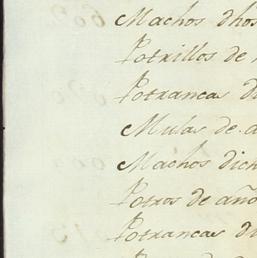 Machos dhos
Potrillos de
Potrancas d
Mulas de a
Machos dich
Potros de año
Potrancas di